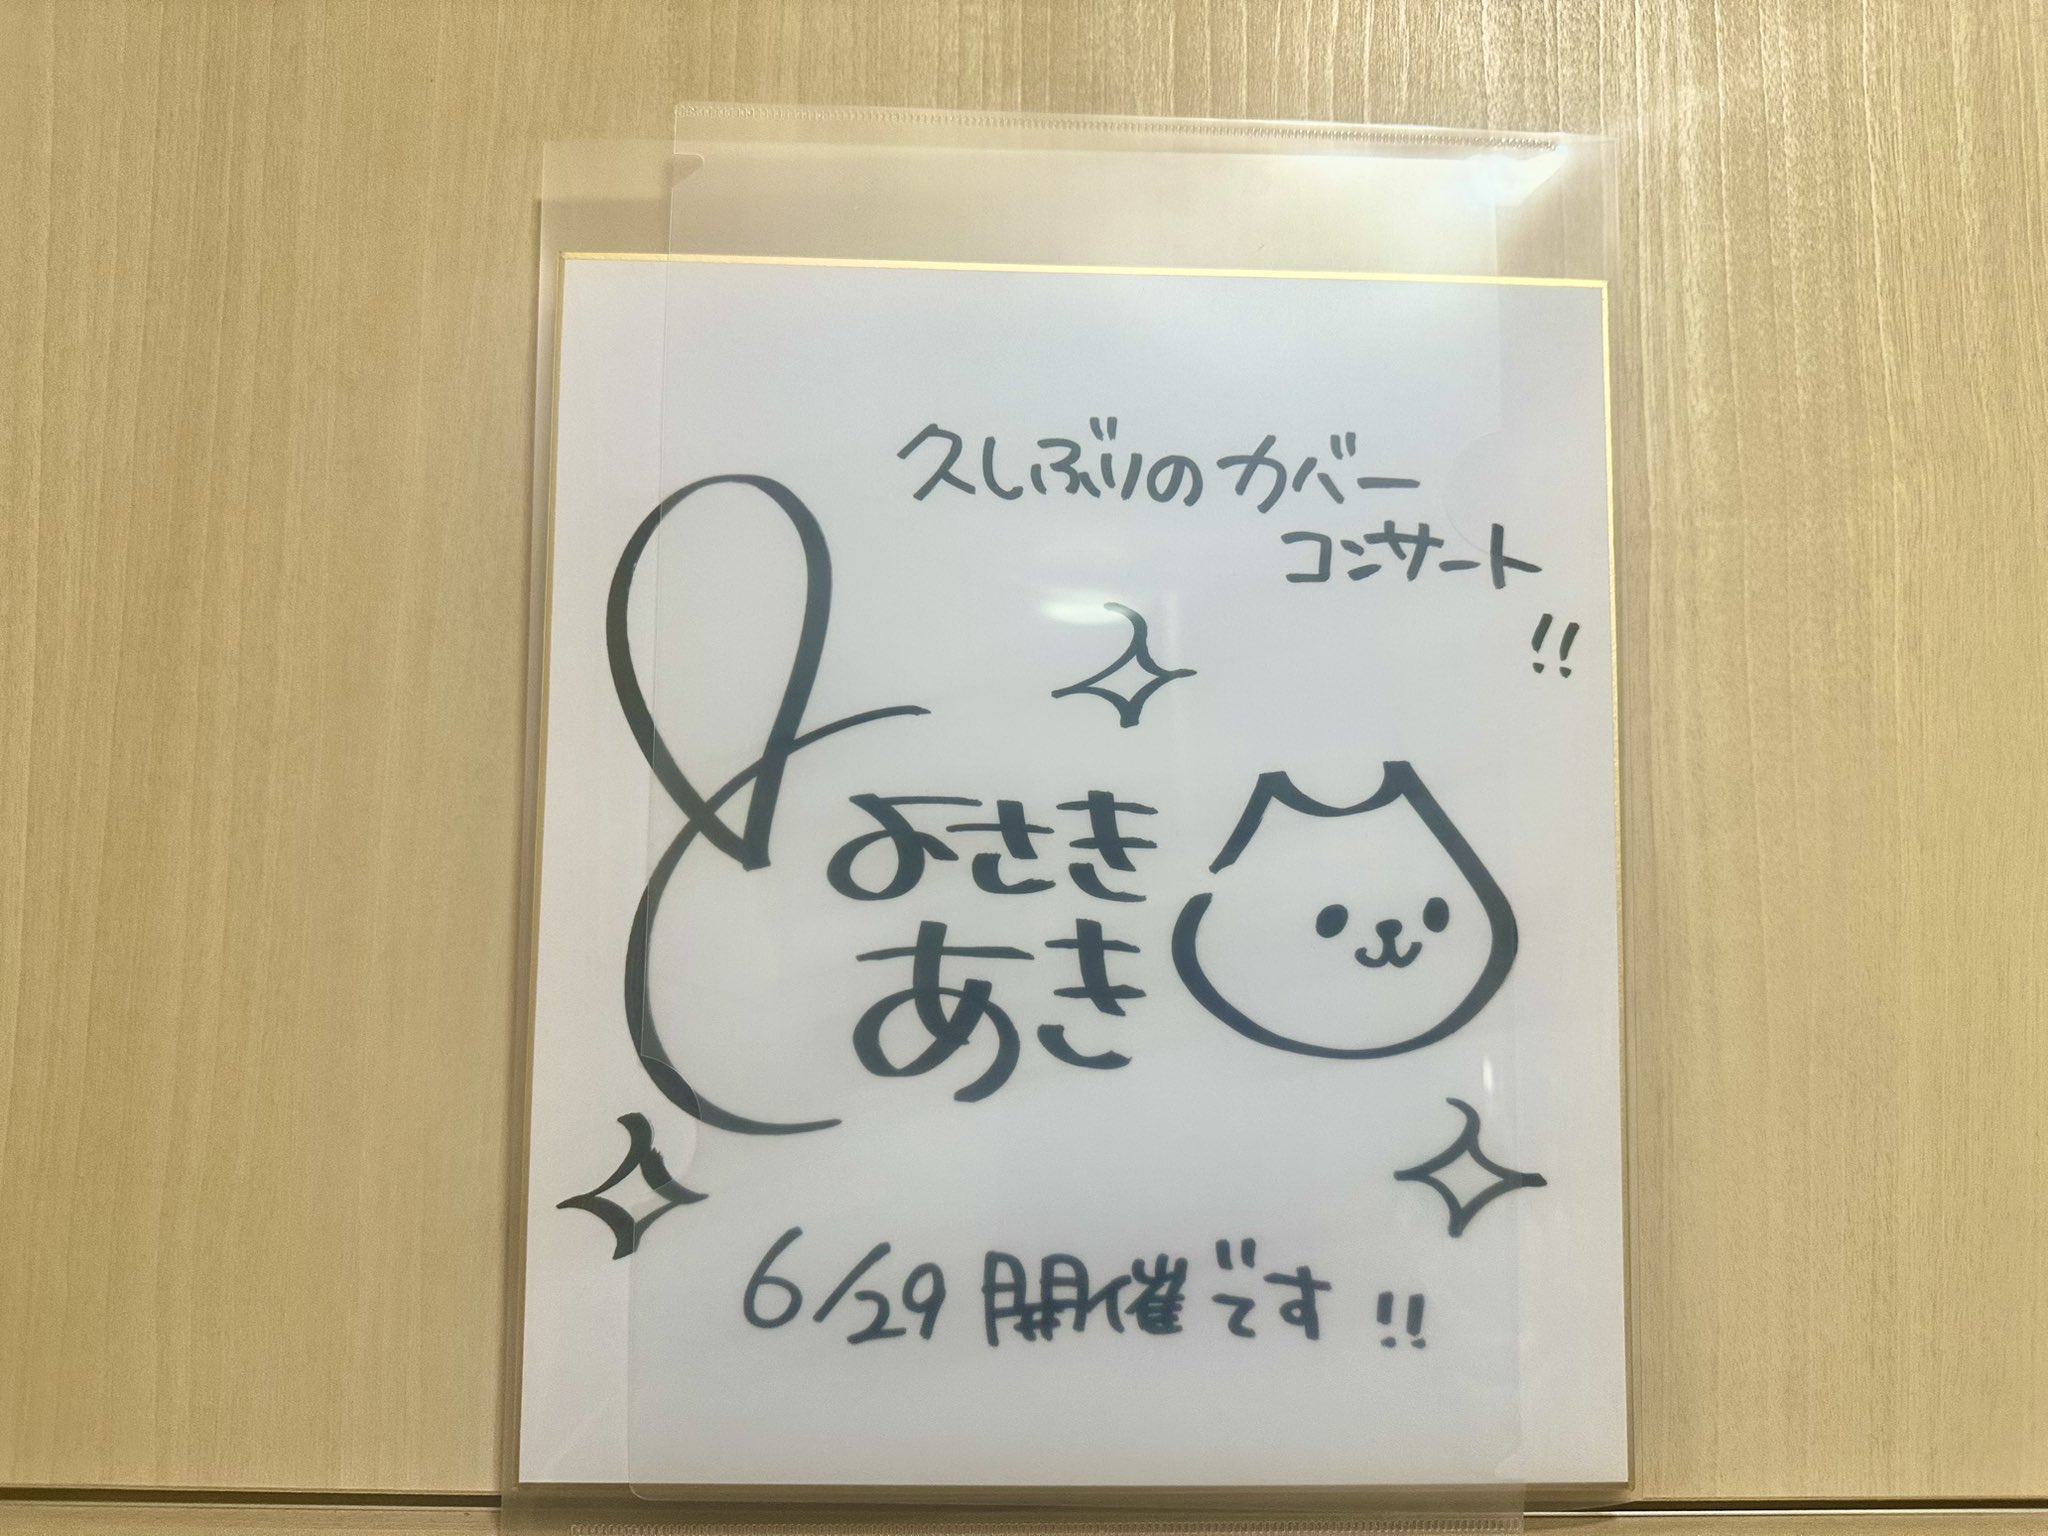 久しぶりのカバー
コンサート
!!
よさき
あき
6/29 開催です!!